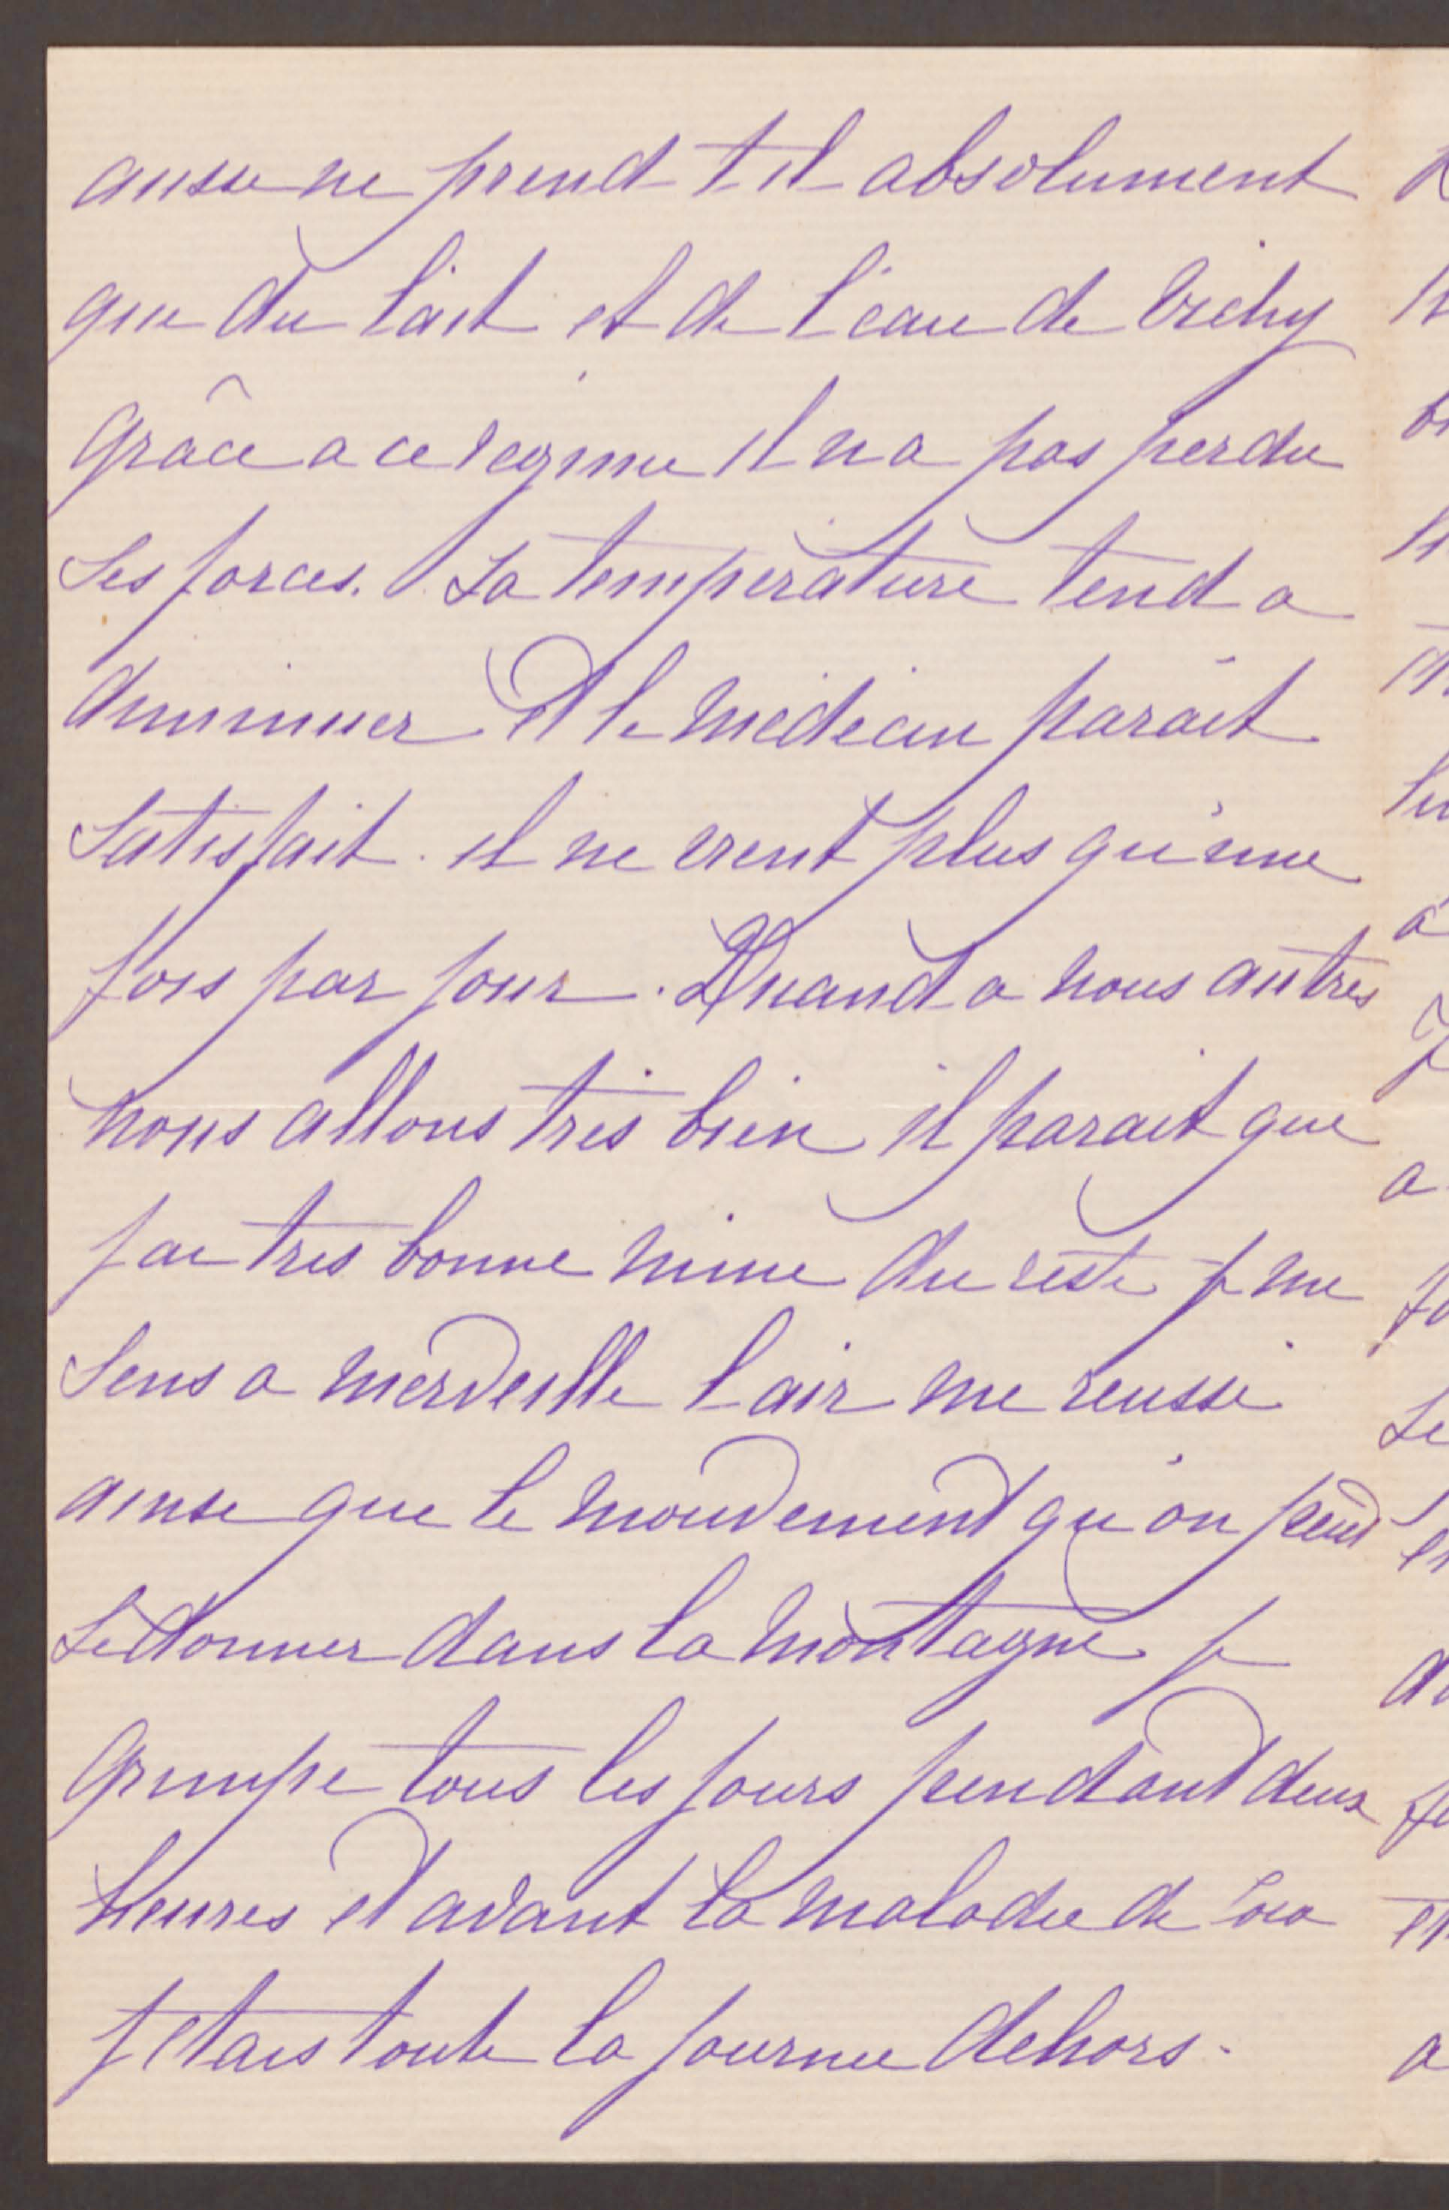 aussi ne prend t il absolument
que du lait et de l'eau de Vichy
grâce a ce regime il n a pas perdu
ses forces. La température tend a
diminuer et le médecin parait
satisfait. il ne vient plus qu'une
fois par jour. Quand a nous autres
nous allons très bien il parait que
j ai tres bonne mine du reste je me
sens a merveille l air me reussi
ainsi que le mouvement qu'on peut
se donner dans la montagne je
grimpe tous les jours pendant deux
heures et avant la maladie de
j etais toute la journee dehors.